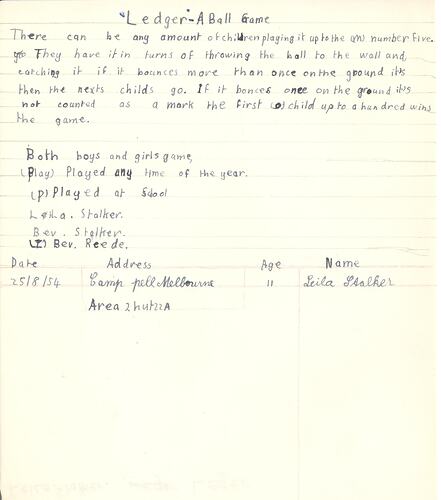 "Ledger"-A Ball Game
There can be any amount of children playing it up to the (n) number five.
They have it in turns of throwing the ball to the wall and,
catching it if it bounces more than once on the ground it's
then the nexts childs go. If it bonces once on the ground it's
not counted as a mark the first child up to a hundred wins
the game.
Both boys and girls game,
(Play) Played any time of the year.
(p) Played at School
Leila. Stalker.
Bev. Stalker.
Bev. Reede,
Date Address Age Name
25/8/54 Camp pell Melbourne 11 Leila Stalker
Area 2 hut 22A